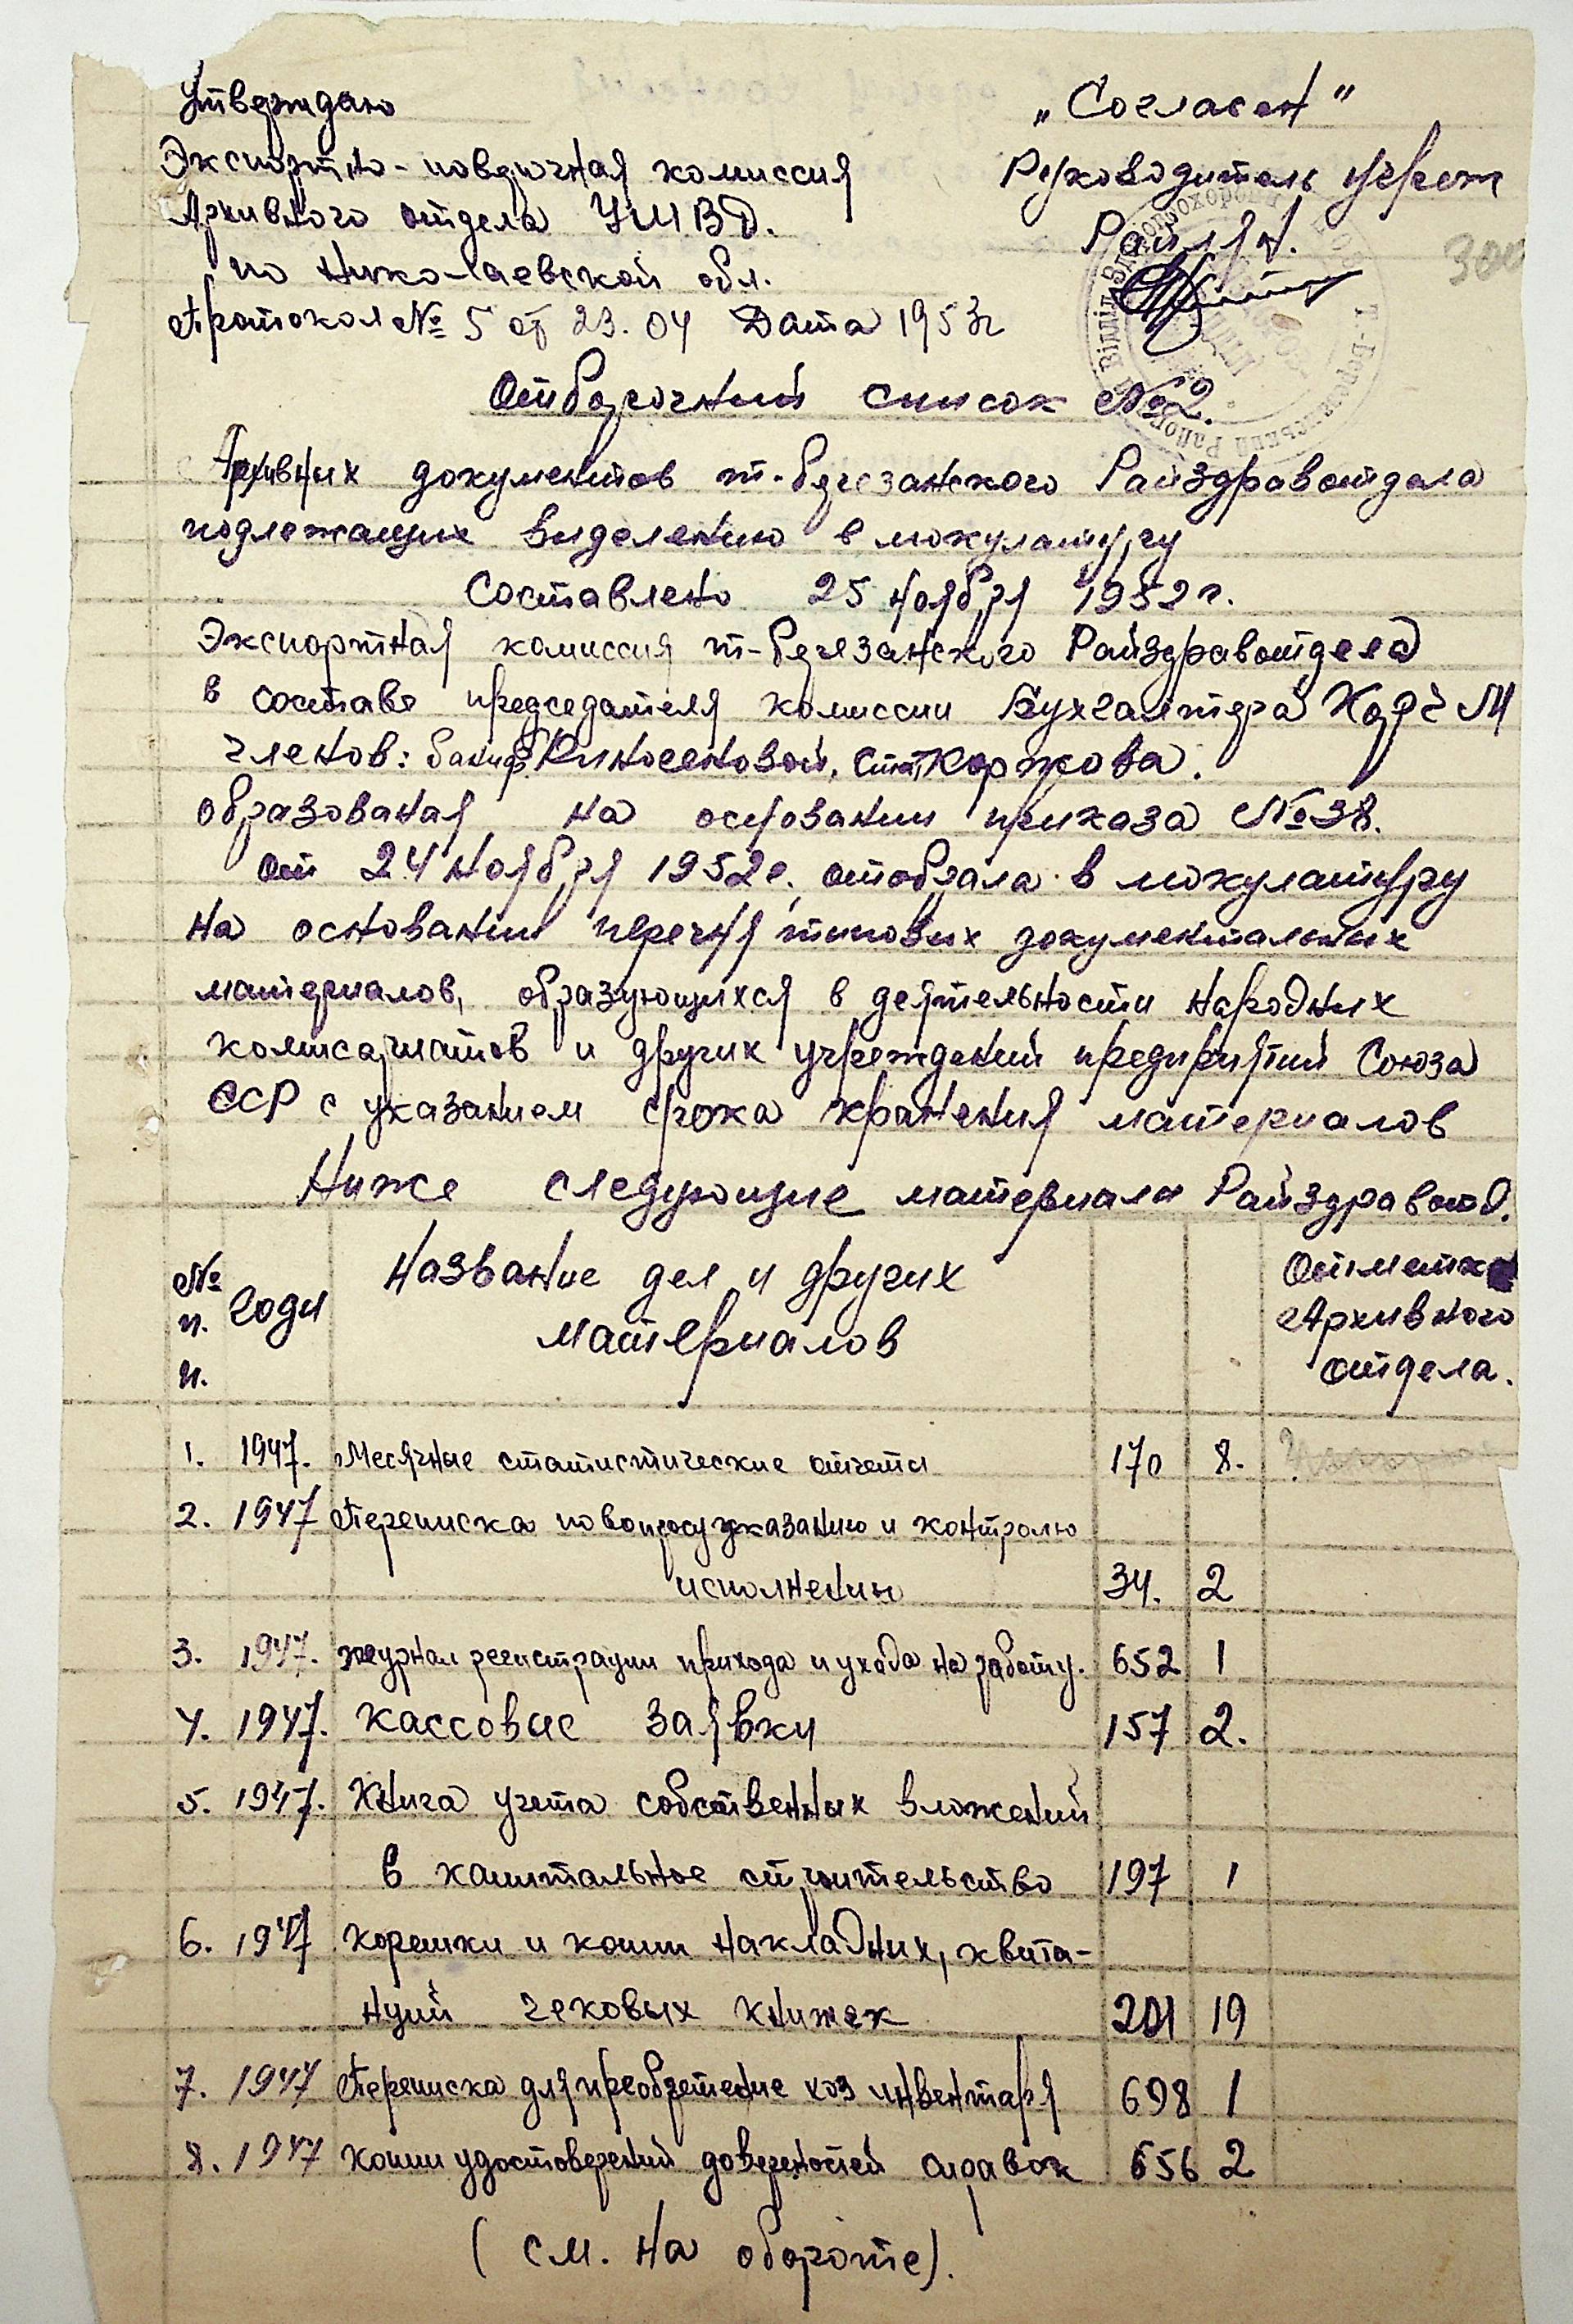 Утверждаю
„Согласен"
Экспортно-поверочная комиссия
Руководитель учрежд
Архивного отдела УМВД.
по Николаевской обл.
Протокол № 5 от 23.04 Дата 1953г
300
Отборочный список №2.
Архивных документов т-березанского Райздравотдела
подлежащих выделению в мокулатуру
Составлено 25 ноября 1952г.
Экспортная комиссия т-березанского Райздравотдела
в составе председателя комиссии Бухгалтера
членов: Коржова.
образованая на основании приказа №38.
от 24 ноября 1952г. отобрала в мокулатуру
на основании перечня типовых документальных
материалов, образующихся в деятельности народных
комисариатов и других учреждений предприятий Союза
ССР с указанием срока хранения материалов
Ниже следующие материалы Райздравотд.
№ п. п. Годы Название дел и других материалов Отметка Архивного отдела.
1. 1947. Месячные статистические отчеты 170 8.
2. 1947 Переписка по вопросу указанию и контролю
исполнению 34. 2
3. 1947. журнал регистрации прихода и ухода на работу. 652 1
4. 1947. Кассовые заявки 157 2.
5. 1947. Книга учета собственных вложений
в капитальное строительство 197 1
6. 1947 Корешки и копии накладных, квита-
нций чековых книжек 201 19
7. 1947 Переписка для преобретение хоз инвентаря 698 1
8. 1947 Копии удостоверений доверенностей справок 656 2
(см. на обороте).